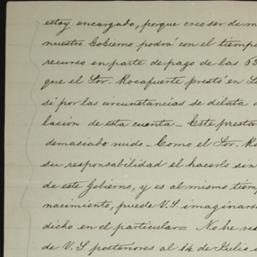 estoy encargado, porque creo ser de m
nuestro Gobierno podrá con el tiemp
recurso en parte de pago de las 63
que el Sor. Rocafuerte prestó en L
si por las circunstancias se dilata
lacion de esta cuenta_ Este presta
demasiado ruido_ Como el Sor. R
su responsabilidad el hacerlo sin
de este Gobierno, y es al mismo tiem
nocimiento, puede V.S. imaginars
dicho en el particular_ No he re
de V.S. posteriores al 14 de Julio